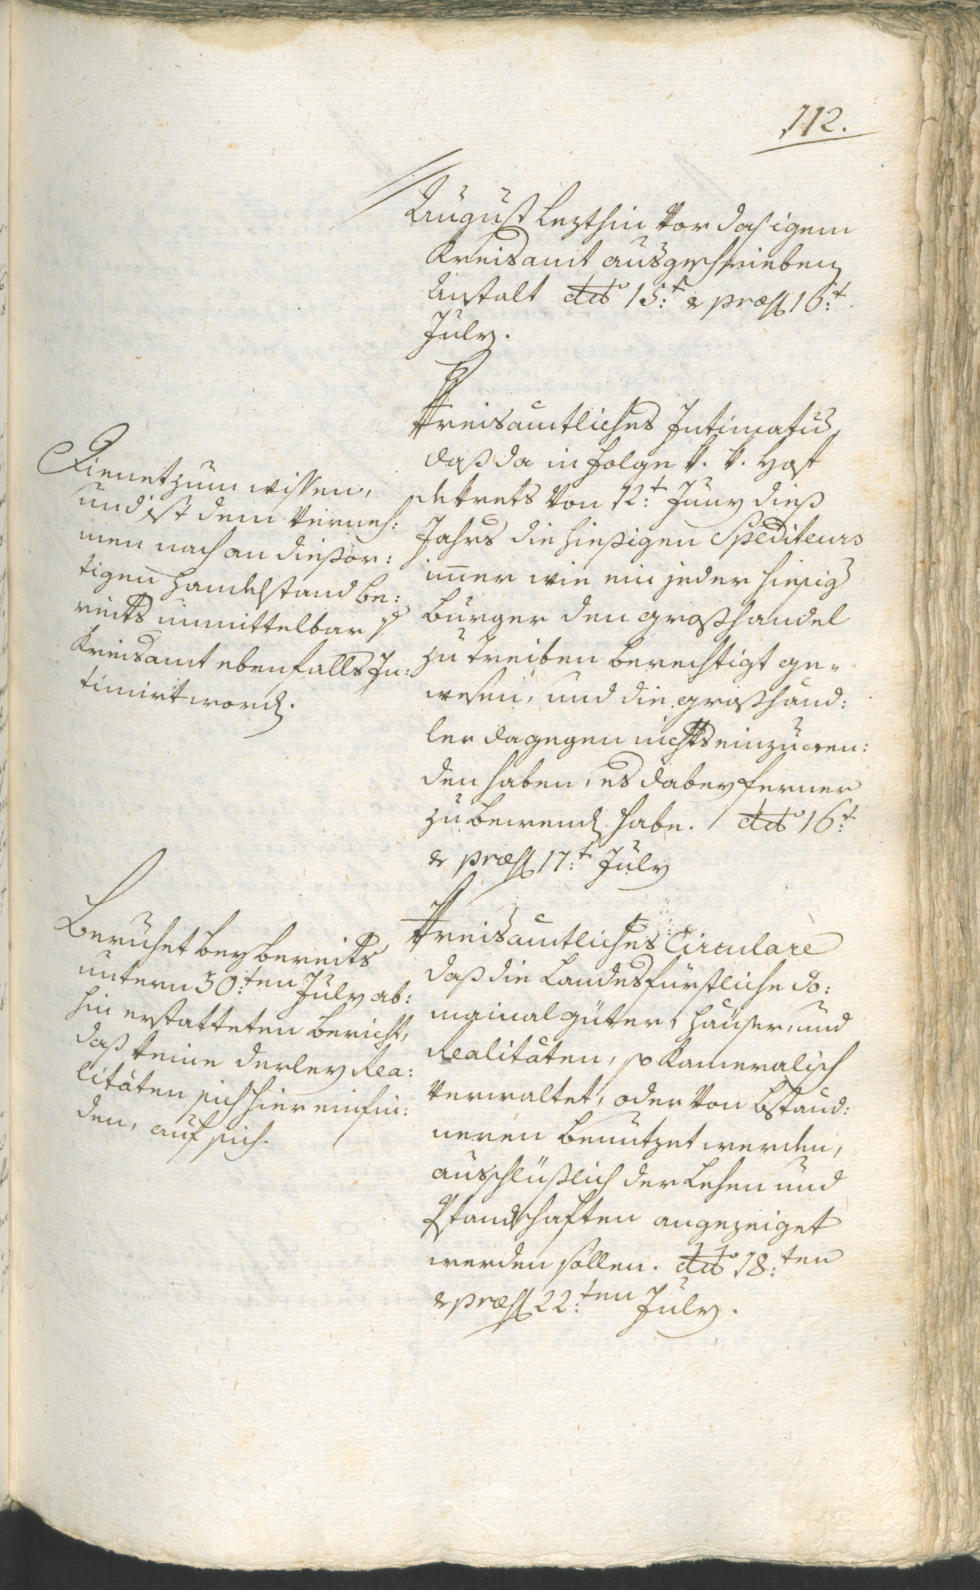 112.
August lezthin vor dasigem
Kreisamt ausgeschrieben
Anstalt ddo 15:t & præs 16:t
July.
Kreisamtliches Intimatum,
daß da in folge k. k. Hof
dekrets von 12:t Juny dieß
Jahrs die hiesigen Spediteurs
im̅er wie ein jeder hiesig
Burger den Großhandel
zu treiben berechtigt ge-
wesen, und die Großhänd:
ler dagegen nichts einzuwen:
den haben, es dabey ferner
zu bewend. habe. ddo 16:t
& præs 17:t July
Dienet zum wissen,
und ist dem Verneh:
men nach an diesor:
tigen Handelstand be:
reits unmittelbar
Kreisamt ebenfalls In:
timirt word.
Kreisamtliches Circulare
daß die Landesfürstliche Do:
mainal Güter, Häuser, und
Realitäten, so Kameralisch
verwaltet, oder von Bständ:
neren benutzet werden,
ausschlüßlich der Lehen und
Pfandschaften angezeiget
werden sollen. ddo 18:ten
& præs 22:ten July.
Beruhet bey bereits
untern 30:ten July ab:
hin erstatteten Bericht,
daß keine derley Rea:
litäten sich hier einfin:
den, auf sich.